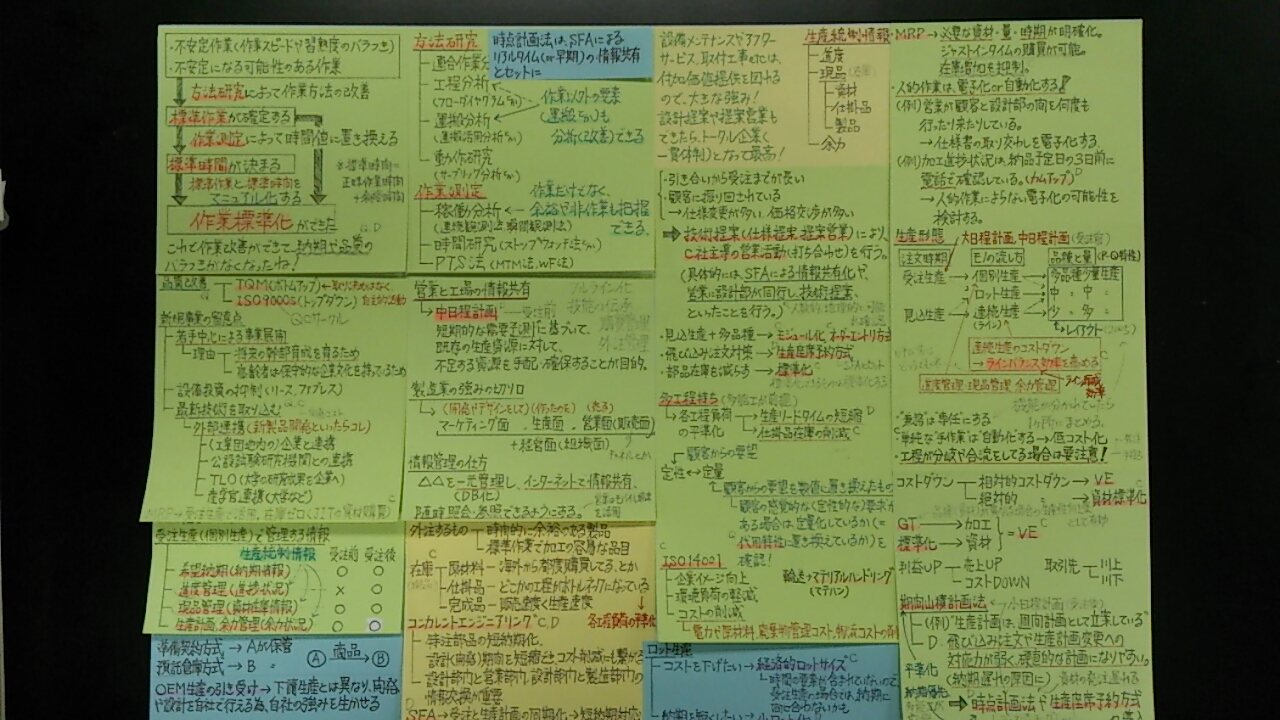 ・不安定作業(作業スピードや習熟度のバラつき)
・不安定になる可能性のある作業
方法研究によって作業方法の改善
標準作業が確定する
作業測定によって時間値に置き換える
標準時間が決まる
標準作業と標準時間を
マニュアル化する
※標準時間=
正味作業時間
+余裕時間
作業標準化ができた
これで作業改善ができて、納期や品質の
バラつきがなくなったね!
方法研究
連合作業分
工程分析
(フローダイヤグラムなど)
運搬分析
(運搬活性分析など)
動作研究
(サーブリッグ分析など)
時点計画法は、SFAによる
リアルタイム(or早期)の情報共有
とセットに
作業以外の要素
(運搬など)も
分析(改善)できる
作業測定
稼働分析
(連続観測法、瞬間観測法)
時間研究(ストップウォッチ法など)
PTS法(MTM法、WF法)
作業だけでなく、
余裕や非作業も把握
できる。
設備メンテナンスやアフター
サービス、取付工事etcは、
付加価値提供を図れる
ので、大きな強み!
設計提案や提案営業も
できたら、トータル企業(
一貫体制)となって最高!
生産統制情報
進度
現品
資材
仕掛品
製品
余力
・MRP→必要な資材・量・時期が明確化。
ジャストインタイムの購買が可能。
在庫増加を抑制。
・人的作業は、電子化or自動化する!
(例)営業が顧客と設計部の間を何度も
行ったり来たりしている。
→仕様書の取り交わしを電子化する
(例)加工進捗状況は、納品予定日の3日前に
電話で確認している。(カムアップ)
→人的作業によらない電子化の可能性を
検討する。
・引き合いから受注までが長い
・顧客に振り回されている
→仕様変更が多い、価格交渉が多い
⇒技術提案(仕様提案、提案営業)により、
C社主導の営業活動(打ち合わせ)を行う。
(具体的には、SFAによる情報共有化や、
営業に設計部が同行し、技術提案、
といったことを行う。)
・見込生産+多品種→モジュール化、オーダーエントリ方式
・飛び込み注文対策→生産座席予約方式
・部品在庫を減らす→標準化
生産形態
大日程計画、中日程計画(受注前)
注文時期
モノの流し方
品種と量(P-Q特性)
受注生産
個別生産→多品種少量生産
ロット生産→中 〃 中 〃
見込生産
連続生産→少 〃 多 〃
(ライン)
レイアウト
連続生産のコストダウン
→ラインバランス効率を高める
進度管理・現品管理・余力管理
品質改善
TQM(ボトムアップ)
ISO9000s(トップダウン)
QCサークル
新規事業の留意点
若手中心による事業展開
理由
将来の幹部育成を図るため
高齢者は保守的な企業文化を持っているため
設備投資の抑制(リース、ファブレス)
最新技術を取り込む
外部連携(新製品開発といったらコレ)
(工業団地内の)企業と連携
公設試験研究機関との連携
TLO(大学の研究成果を企業へ)
産学官連携(大学など)
営業と工場の情報共有
中日程計画
受注前
短期的な需要予測に基づいて、
既存の生産資源に対して、
不足する資源を手配・確保することが目的。
製造業の強みの切り口
(開発やデザインをして)(作ったのを)(売る)
マーケティング面、生産面、営業面(販売面)
+経営面(組織面)
情報管理の仕方
△△を一元管理し、インターネットで情報共有、
(DB化)
随時照会・参照できるようにする。
多工程持ち
各工程負荷
の平準化
→生産リードタイムの短縮
→仕掛品在庫の削減
顧客からの要望
定性⇔定量
顧客からの要望を数値に置き換えたもの
顧客の感覚的な(定性的な)要求が
ある場合は、定量化しているか(=
代用特性に置き換えているか)を
確認!
・"兼務"は専任にする
・単純な"手作業"は自動化する→低コスト化
・工程が分岐や合流をしてる場合は要注意!
コストダウン
相対的コストダウン→VE
絶対的 〃→資材標準化
GT→加工
標準化→資材
=VE
利益UP
売上UP
コストDOWN
取引先
川上
川下
受注生産(個別生産)で管理する情報
生産統制情報 受注前 受注後
希望納期(納期情報) ○ ○
進度管理(進捗状況) × ○
現品管理(資材在庫情報) ○ ○
生産計画、余力管理(余力状況) ○ ○
外注するもの
時間的に余裕のある製品
標準作業で加工の容易な品目
在庫
原材料→海外から都度購買してる、とか
仕掛品→どこかの工程がボトルネックになっている
完成品→販売速度<生産速度
各工程負荷の平準化
コンカレントエンジニアリング
特注部品の短納期化。
設計(開発)期間を短縮でき、コスト削減にも繋がる
設計部内と営業部内、設計部内と製造部内の
情報交換が重要
SFA→受注と生産計画の同期化→短納期対応
ISO14001
企業イメージ向上
環境負荷の軽減
コストの削減
電力や原材料、廃棄物管理コスト、物流コストの削
輸送→マテリアルハンドリング
(マテハン)
期間山積計画法
小日程計画(受注後)
(例)生産計画は、週間計画として立案している
飛び込み注文や生産計画変更への
対応力が弱く、硬直的な計画になりやすい。
(納期遅れの原因に)
平準化
納期優先
⇒時点計画法や生産座席予約方式
準備契約方式→Aが保管
預託倉庫方式→B 〃
Ⓐ商品→Ⓑ
OEM生産の引き受け→下請生産とは異なり、開発
や設計を自社で行える為、自社の強みを生かせる
ロット生産
コストを下げたい→経済的ロットサイズ
時間の要素が含まれていないので
受注生産の場合では、納期に
間に合わないかも